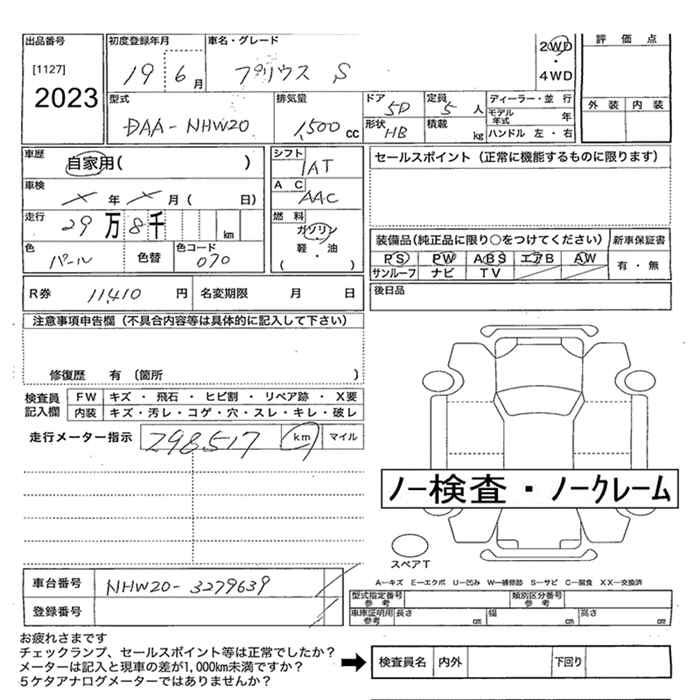 出品番号 初度登録年月 車名・グレード 評価点
[1127] 2023 19 6月 プリウス S 2WD・4WD
外装 内装
型式 排気量 ドア 定員 ディーラー・並行
DAA-NHW20 1,500cc 5D 5人 モデル年式 年
形状 HB 積載 kg ハンドル 左・右
車歴 自家用( ) シフト 1AT セールスポイント(正常に機能するものに限ります)
車検 X年X月( 日) AC AAC
走行 29万8千 km 燃料 ガソリン 軽・油 ( )
装備品(純正品に限り○をつけてください) 新車保証書
色 パール 色替 色コード 070
PS PW ABS エアB AW 有・無
サンルーフ ナビ TV
R券 11,410円 名変期限 月 日 後日品
注意事項申告欄(不具合内容等は具体的に記入して下さい)
修復歴 有(箇所 )
検査員記入欄 FW キズ・飛石・ヒビ割・リペア跡・X要
内装 キズ・汚レ・コゲ・穴・スレ・キレ・破レ
走行メーター指示 298517 km マイル
ノー検査・ノークレーム
スペアT
A-キズ E-エクボ U-凹み W-補修跡 S-サビ C-腐食 XX-交換済
車台番号 NHW20-3279639
型式指定番号 参考 類別区分番号 参考
登録番号
車庫証明用 参考 長さ cm 幅 cm 高さ cm
お疲れさまです
チェックランプ、セールスポイント等は正常でしたか?
メーターは記入と現車の差が1,000km未満ですか?
5ケタアナログメーターではありませんか?
➡ 検査員名 内外 下回り